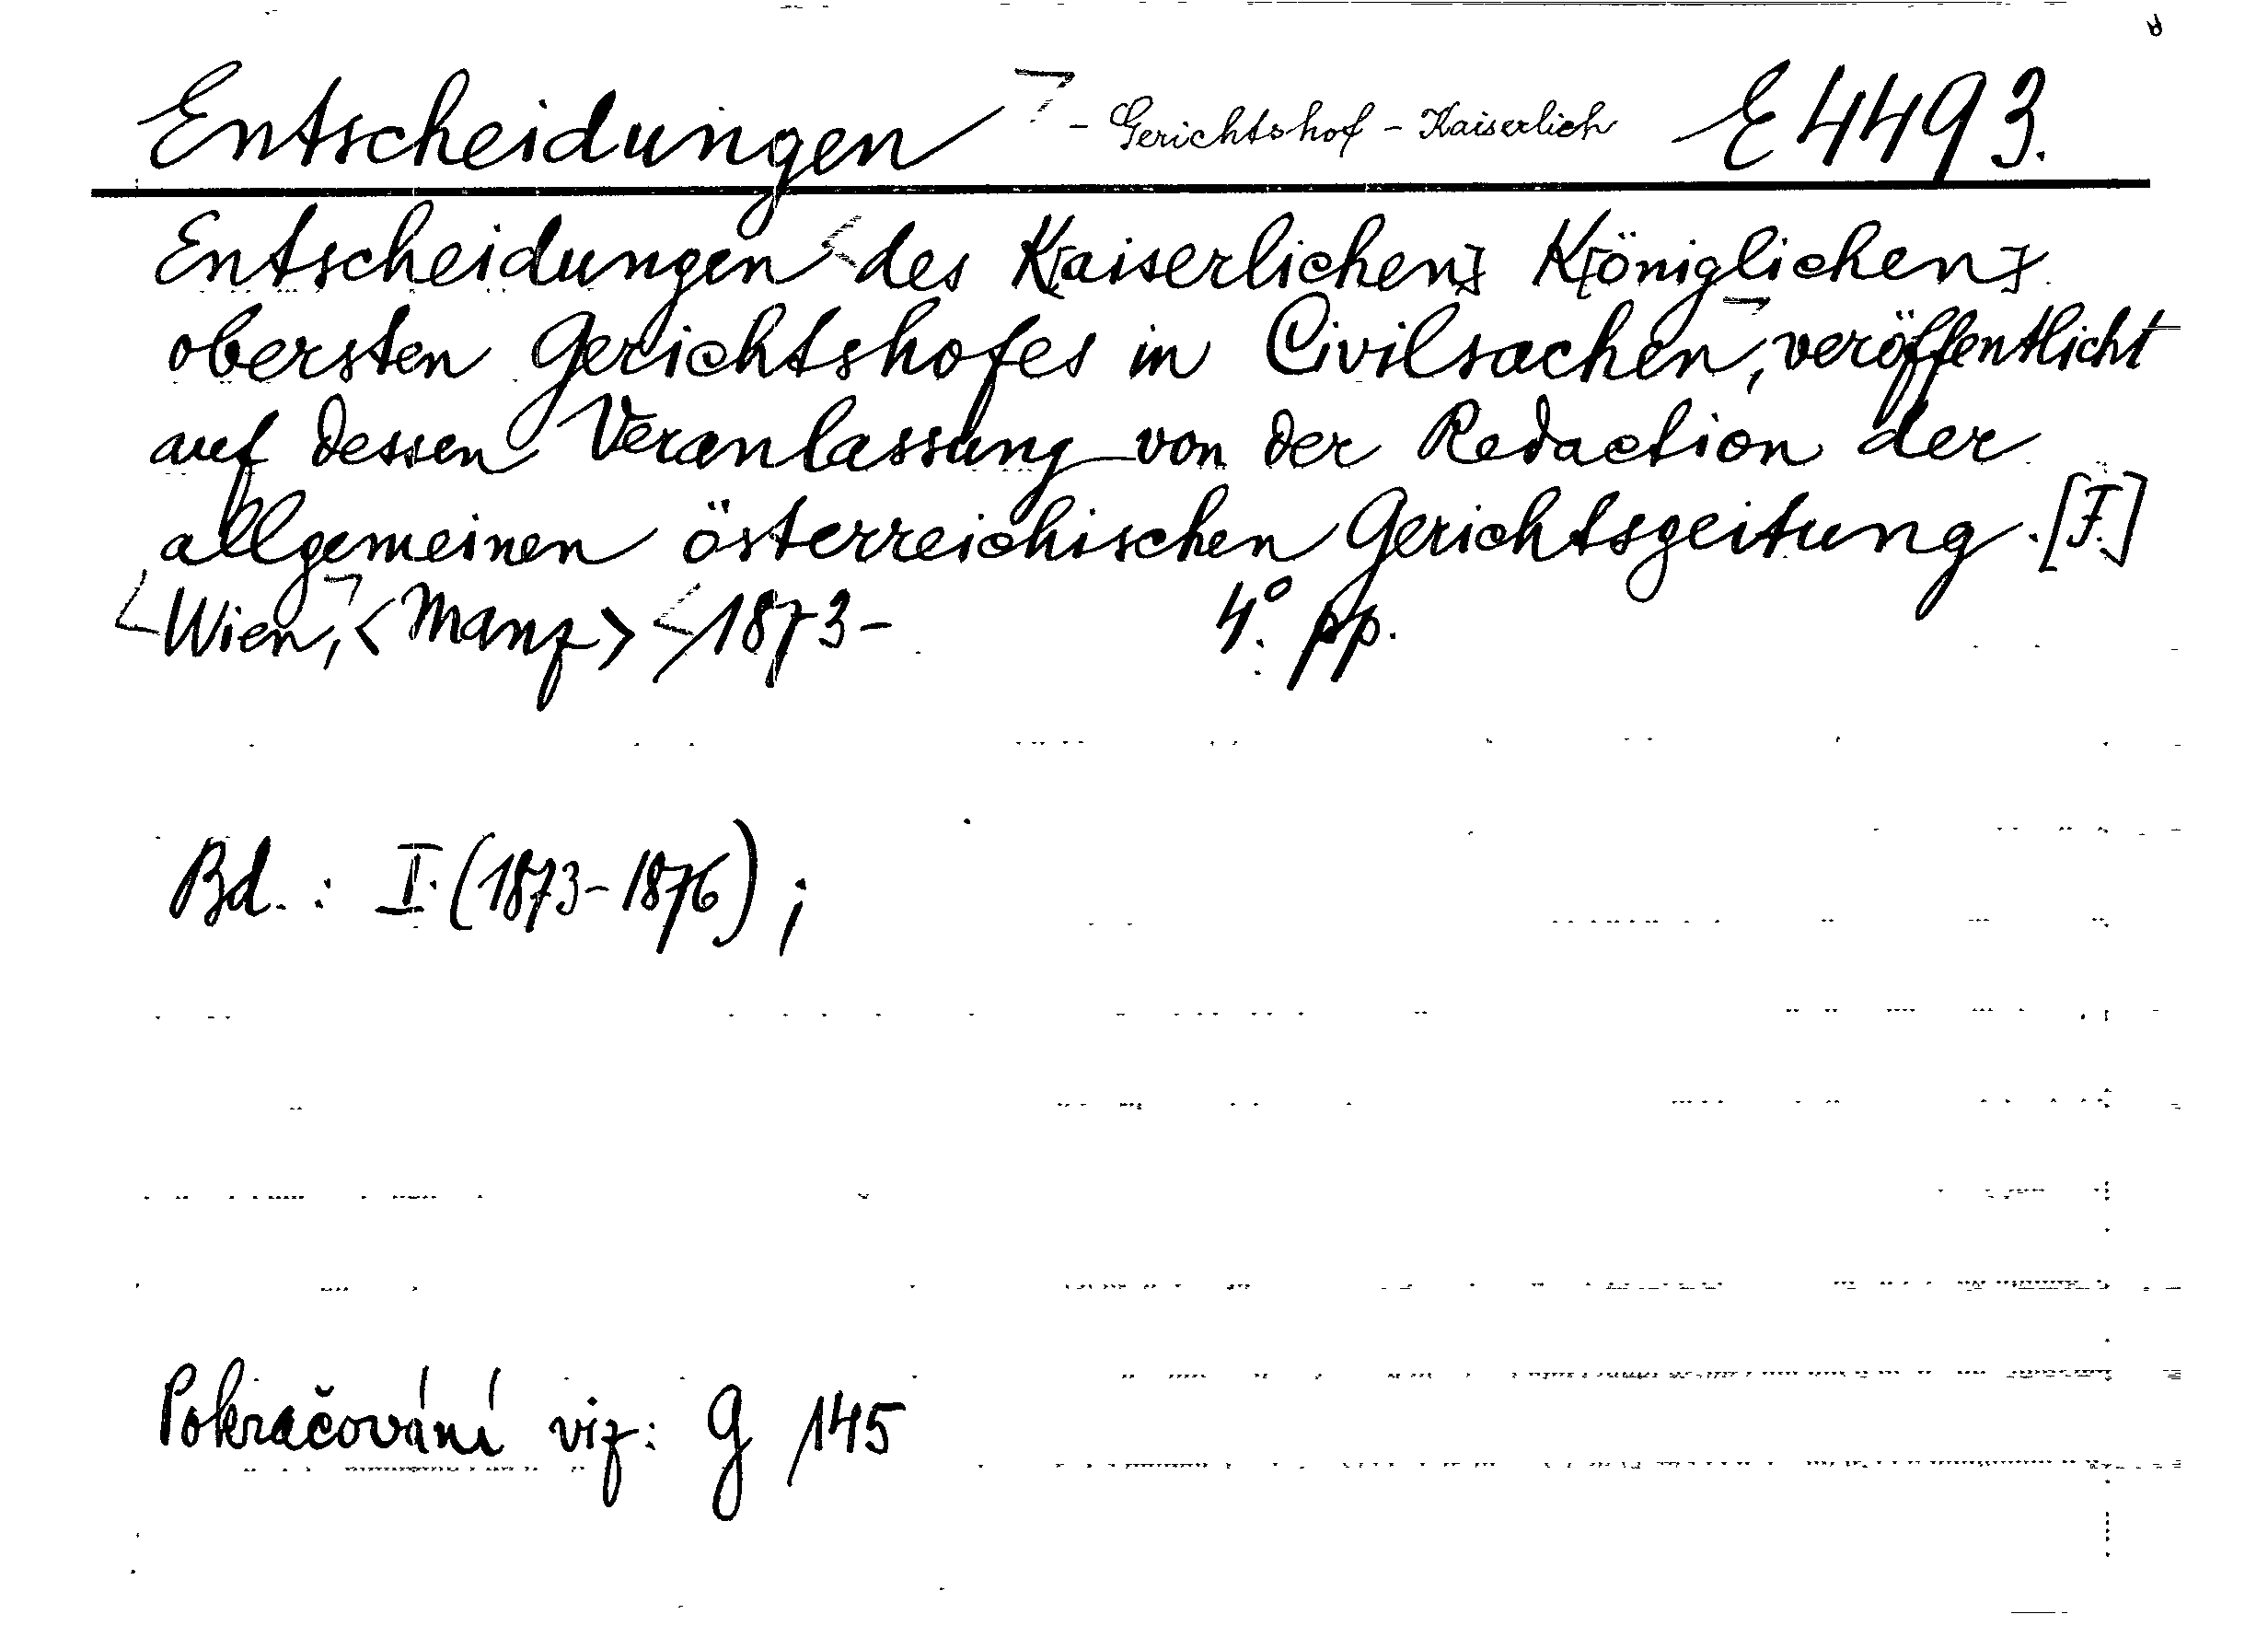 Entscheidungen - Gerichtshof - Kaiserlich E 4493.
Entscheidungen des K[aiserlichen] K[öniglichen]
obersten Gerichtshofes in Civilsachen, veröffentlicht
auf dessen Veranlassung von der Redaction der
allgemeinen österreichischen Gerichtszeitung. [F.]
Wien, <Manz> 1873- 4°. pp.
Bd.: I. (1873-1876);
Pokračování viz: G 145